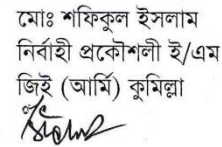 মোঃ শফিকুল ইসলাম
নির্বাহী প্রকৌশলী ই/এম
জিই (আর্মি) কুমিল্লা